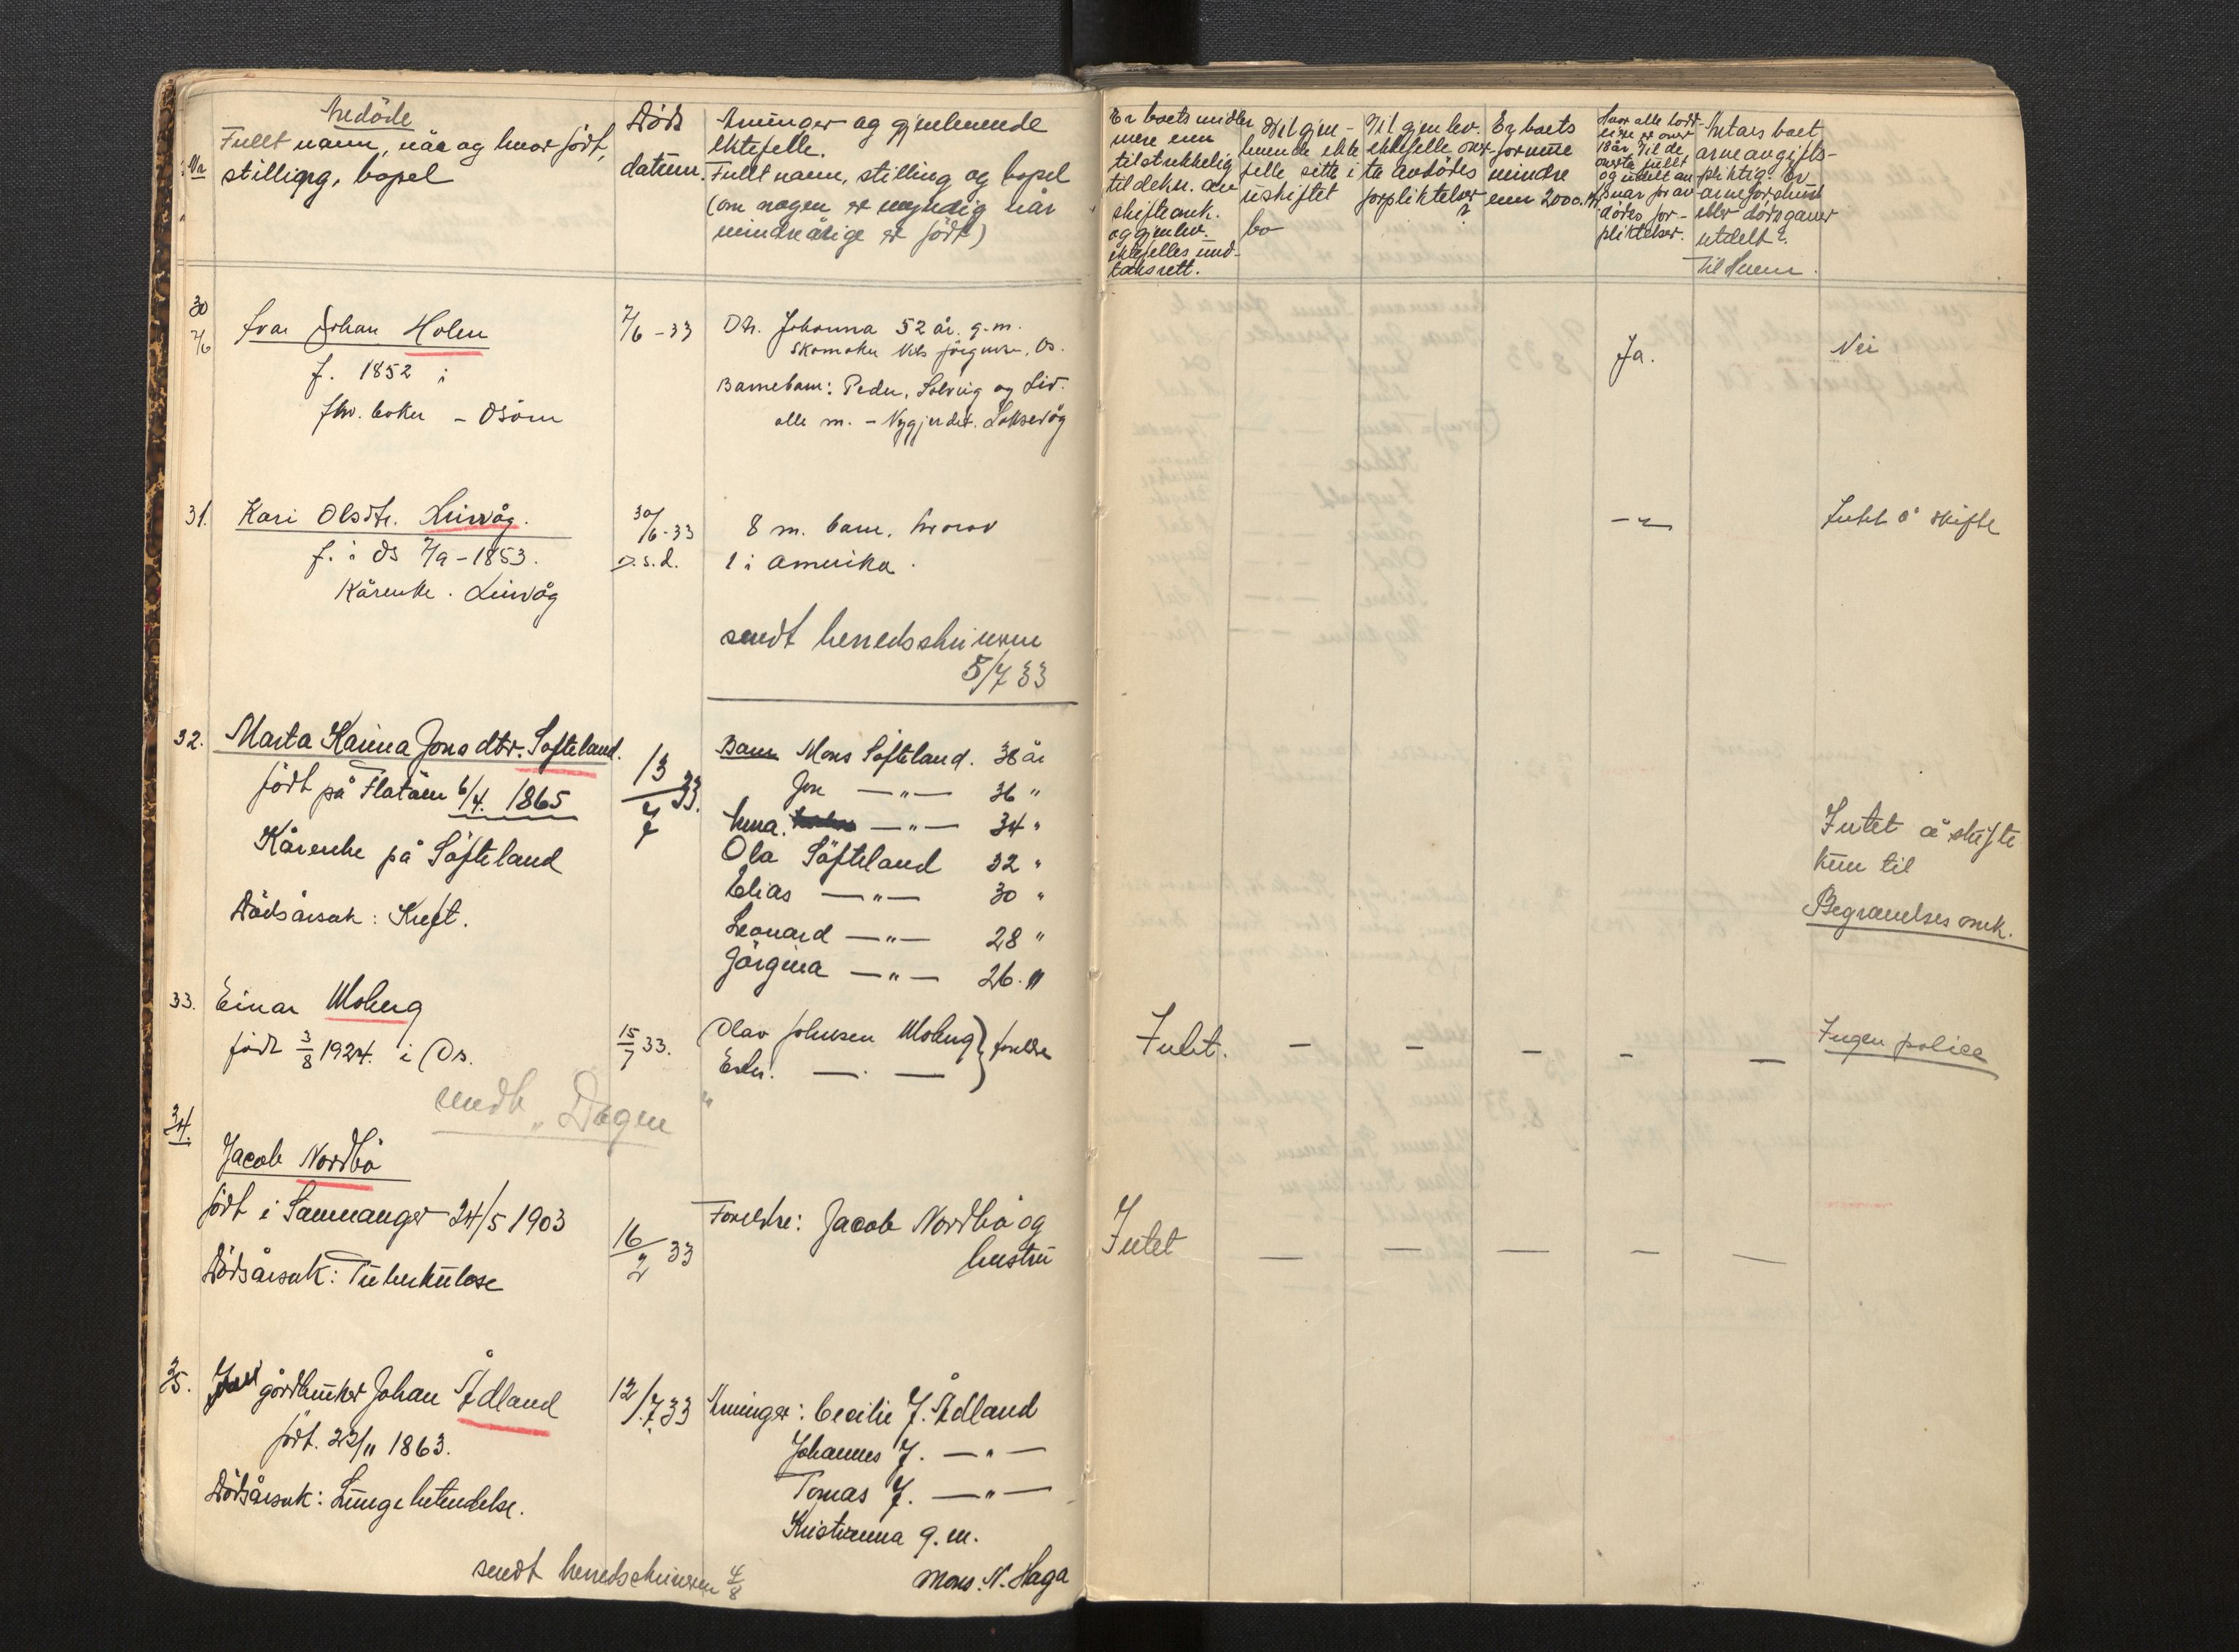 Nr
Avdöde
Fullt navn, når og hvor födt,
stilling, bopel
Döds
datum.
Arvinger og gjenlevende
ektefelle.
Fullt navn, stilling og bopel
(om nogen er umyndig når
mindreårige er födt)
Er boets midler
mere enn
tilstrekkelig
til dekn. av
skifteomk.
og gjenlev.
ektefelles und-
taksrett.
Vil gjen-
levende ekte
felle sitte i
uskiftet
bo
Vil gjenlev.
ektefelle over-
ta avdödes
forpliktelser
?
Er boets
formue
mindre
enn 2000.
Hvor alle lodd-
eiere er over
18 år. Vil de
overta fullt
og udelt an
svar for av
dödes for-
pliktelser.
Antas boet
arveavgifts-
pliktig. Er
arveforskudd
eller dödsgaver
utdelt?
Til Hvem.
30
2/6
Ivar Johan Holen
f. 1852 i
fhv. baker - Osören
7/6 - 33
Dtr. Johanna 52 år. g. m.
skomaker Nils Jörgensen, Os.
Barnebarn: Peder, Solveig og Liv.
alle m. - Nygjerdet. Laksevåg
Ja.
Nei
31.
Kari Olsdtr. Lurvåg.
f. i Os 7/9 - 1853.
Kårenke. Lurvåg
30/6 - 33
D.s.d.
8 m. barn. hvorav
1 i Amerika.
sendt herredsskriveren
5/7 33
— " —
Intet å skifte
32.
Marta Karina Jonsdtr. Söfteland.
födt på Flatöen 6/4. 1865
Kårenke på Söfteland
Dödsårsak: Kreft.
13/7 33.
Barn Mons Söfteland. 38 år
Jon — " — 36 "
Anna. — " — 34 "
Ola Söfteland 32 "
Elias — " — 30 "
Leonard — " — 28 "
Jörgina — " — 26. "
Intet å skifte
kun til
Begravelses omk.
33.
Einar Moberg
födt 3/8 1924. i Os.
15/7 33.
Olav Johnsen Moberg } foreldre
— . —
Intet. — — — — —
Ingen police
sendt "Dagen"
34.
Jacob Nordbö
födt i Samnanger 24/5 1903
Dödsårsak: Tuberkulose
16/2 33
Foreldre: Jacob Nordbö og
hustru
Intet — — — — —
35.
gårdbruker Johan Ådland
födt. 23/11 1863.
Dödsårsak: Lungebetendelse.
12/7. 33
Arvinger: Cecilie J. Ådland
Johannes J. — " —
Tomas J. — " —
Kristianna g. m.
Mons. N. Haga
sendt herredsskriveren 4/8